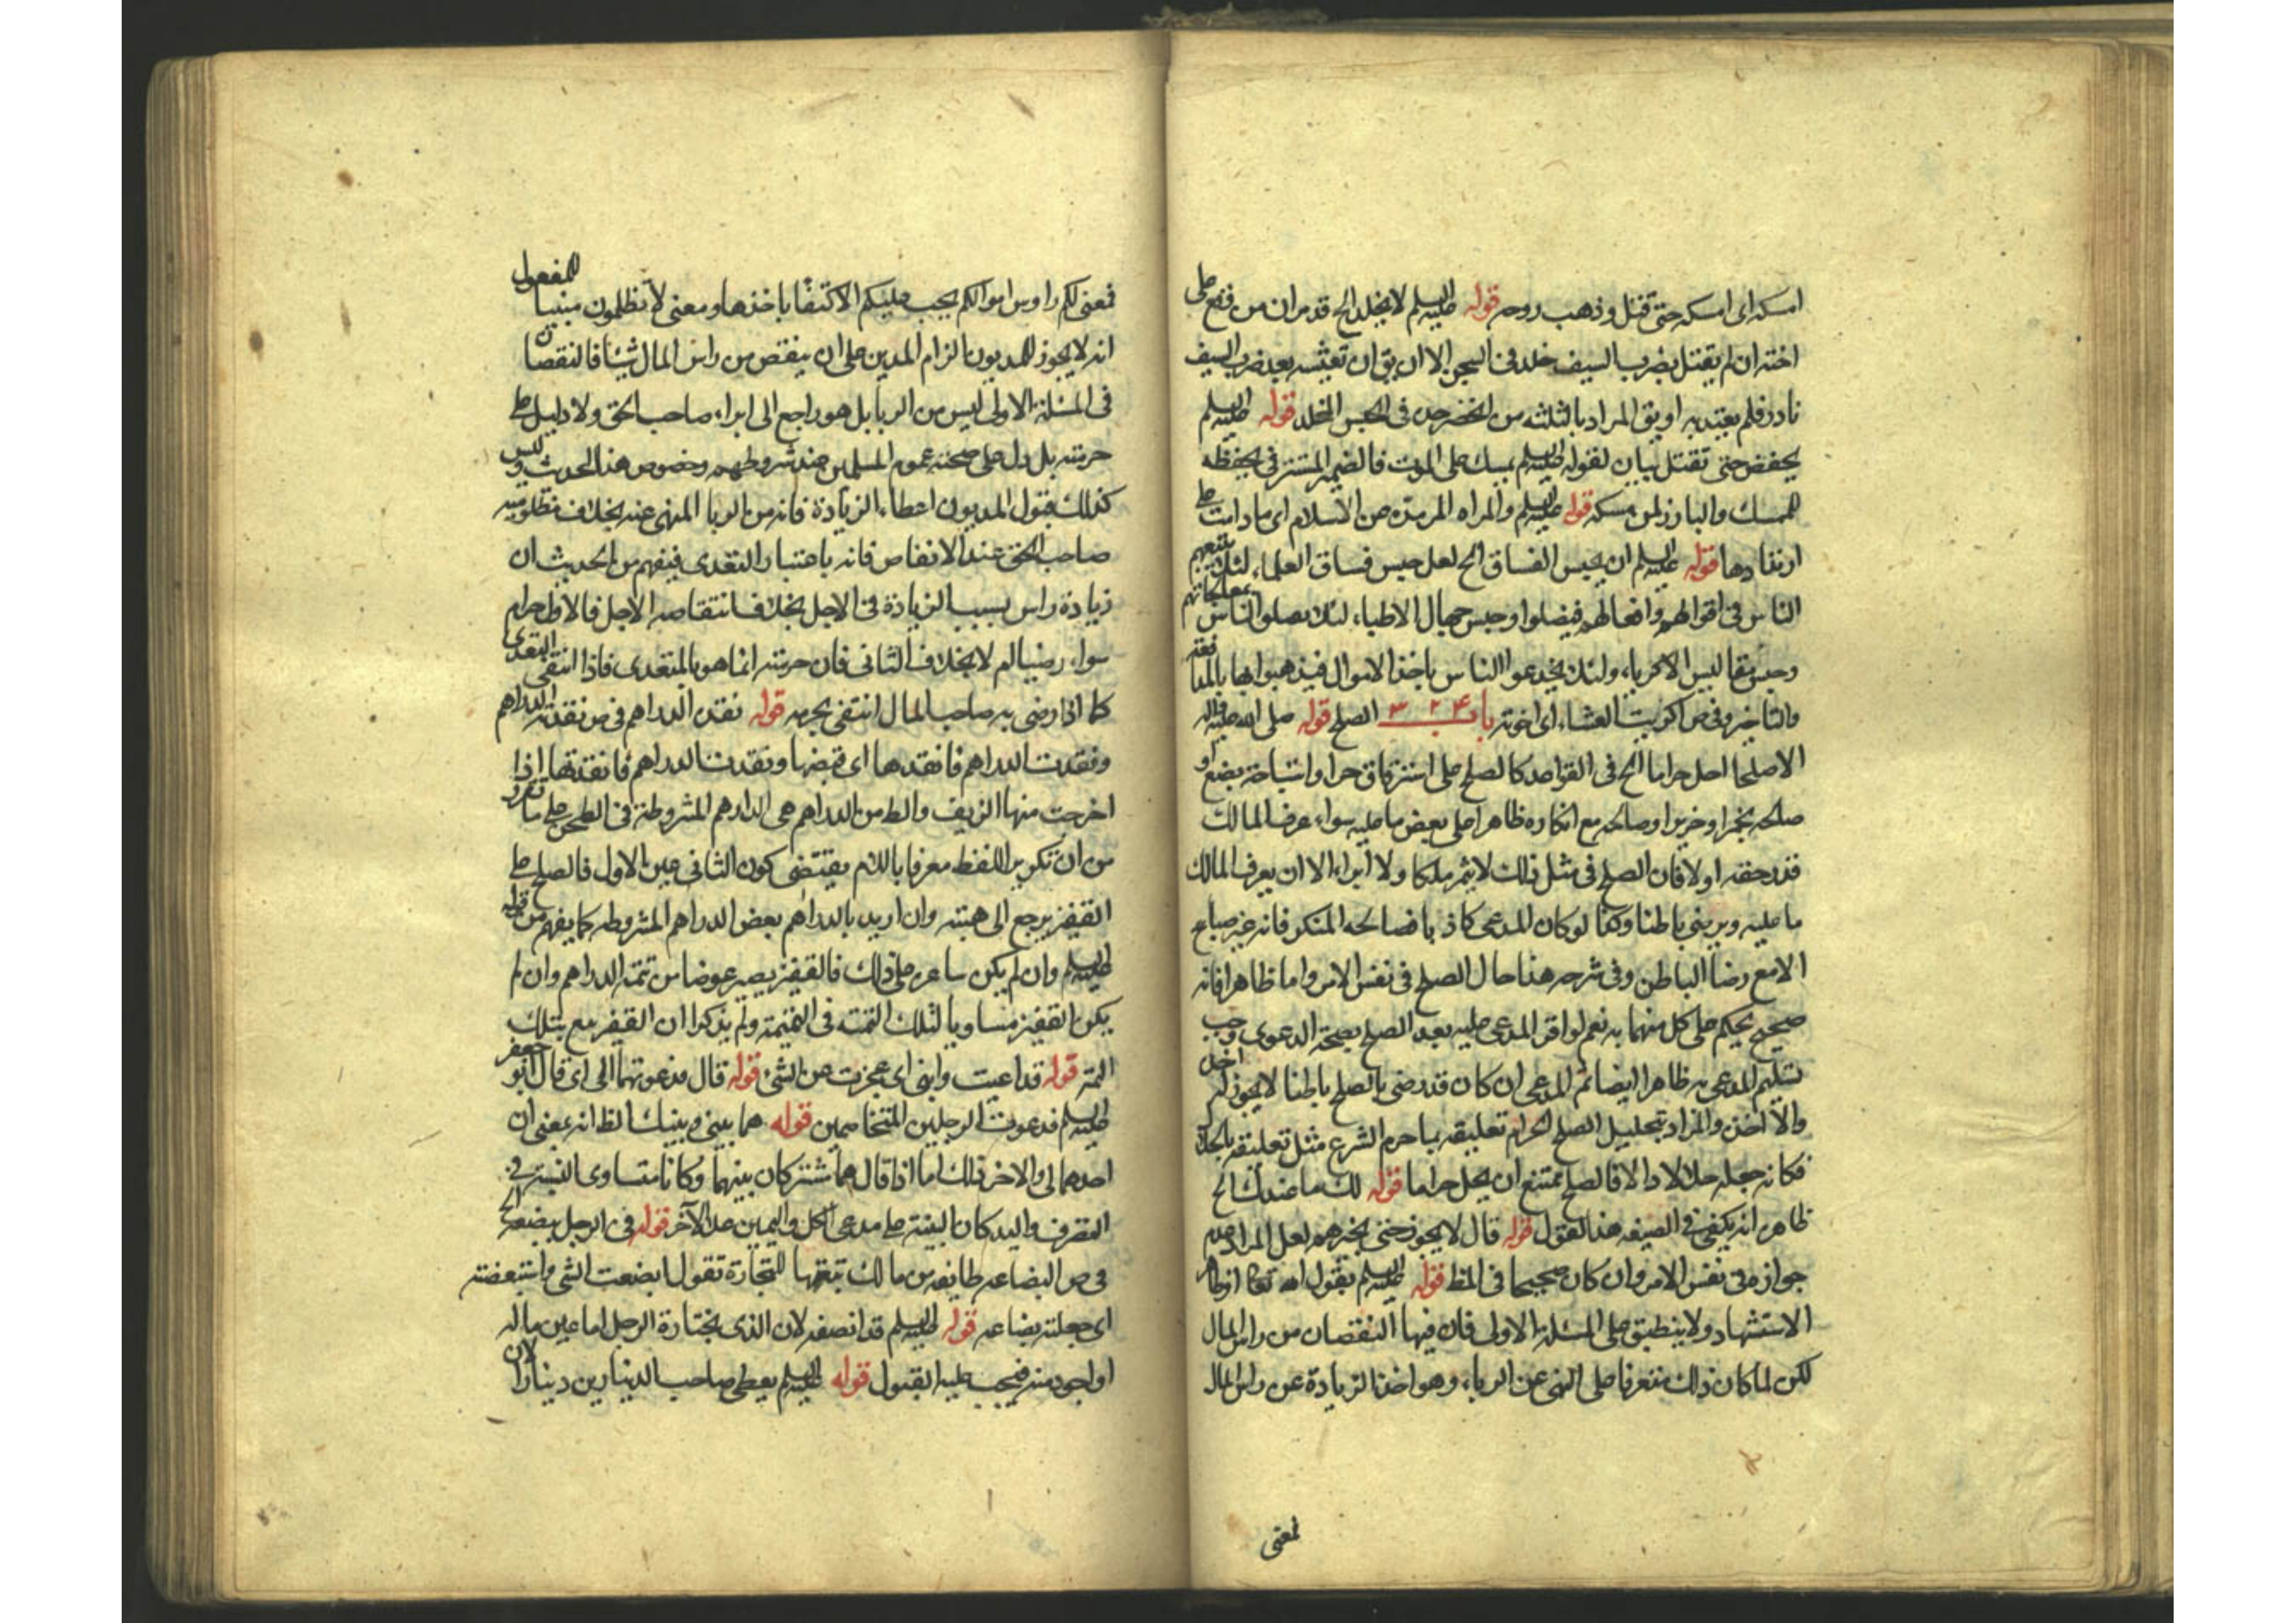 امسكه اى امسكه حتى قتل وذهب روحه قوله عليه السلم لا يخلد الخ قد مر ان من وقع على
اخته ان لم يقتل بضرب السيف خلد فى السجن الا ان يق ان تعيشه بعد ضرب السيف
نادر فلم يعتد به او يق المراد بالثلثه من انحصر حده فى الحبس المخلد قوله عليه السلم
يحفضه حتى تقتل بيان لقوله عليه السلم يمسك على الموت فالضمير المستتر فى يحفظه
للممسك والبارز لمن مسكه قوله عليه السلم والمراه المرتدة عن الاسلام اى ما دامت على
ارتدادها قوله عليه السلم ان يحبس الفساق الخ لعل حبس فساق العلماء لئلا يتبعهم
الناس فى اقوالهم وافعالهم فيضلوا وحبس جهال الاطباء لئلا يصلوا الناس بمعالجاتهم
وحبس مفاليس الاكرياء ولئلا يخدعوا الناس باخذ الاموال فيذهبوا بها بالمدافعة
والتاخير وفى ص اكريت العشاء اى اخرته باب الصلح قوله صلى الله عليه واله
الا صلحا احل حراما الخ فى القواعد كالصلح على استرقاق حر او استباحة بضع او
صلحه بخمر او خنزير او صالحه مع انكاره ظاهرا على بعض ما عليه سواء عرف المالك
قدر حقه او لا فان الصلح فى مثل ذلك لا يثمر ملكا ولا ابراء الا ان يعرف المالك
ما عليه ويرضى باطنا وكذا لو كان المدعى كاذبا فصالحه المنكر فانه غير مباح
الا مع رضا الباطن وفى شرحه هذا حال الصلح فى نفس الامر واما ظاهرا فانه
صحيح يحكم على كل منهما به نعم لو اقر المدعى عليه بعد الصلح بصحة الدعوى وجب
تسليم المدعى به ظاهرا ايضا ثم المدعى ان كان قد رضى بالصلح باطنا لا يجوز له اخذ
والا اخذ والمراد بتحليل الصلح الحرام تعليقه بما حرم الشرع مثل تعليقه بالحلال
فكانه جعله حلالا والا فالصلح يمتنع ان يحل حراما قوله لك ما عندك الخ
ظاهره انه يكفى فى الصيغه هذا القول قوله قال لا يجوز حتى يخبرهم لعل المراد عدم
جوازه فى نفس الامر وان كان صحيحا فى الظ قوله عليه السلم يقول الله تعالى
الاستشهاد ولا ينطبق على المسئلة الاولى فان فيها النقصان من راس المال
لكن لما كان ذلك متفرعا على النهى عن الرباء وهو اخذ الزيادة عن راس المال
فمعنى
فمعنى لكم رؤس اموالكم يجب عليكم الاكتفا باخذها ومعنى لا تظلمون مبنيا للمفعول
انه لا يجوز للمديون الزام المدين على ان ينقص من راس المال شيئا فالنقصان
فى المسئلة الاولى ليس من الربا بل هو راجع الى ابراء صاحب الحق ولا دليل على
حرمته بل دل على صحته عموم المسلمين عند شروطهم وخصوص هذا الحديث وليس
كذلك قبول المديون اعطاء الزيادة فانه من الربا المنهى عنه بخلاف مظلومية
صاحب الحق عند الانقاص فانه باعتبار التعدى فيفهم من الحديث ان
زيادة راس بسبب الزيادة فى الاجل بخلاف انتقاصه الاجل فالاول حرام
سواء رضيا ام لا بخلاف الثانى فان حرمته انما هو بالتعدى فاذا انتفى التعدى
كما اذا رضى به صاحب المال انتفى تحريمه قوله نقدت الدراهم فى ص نقدته الدراهم
ونقدت له الدراهم فانتقدها اى قبضها ونقدت الدراهم فانتقدتها اذا
اخرجت منها الزيف والظ من الدراهم هى الدراهم المشروطة فى الطحن على ما تقرر
من ان تكرير اللفظ معرفا باللام يقتضى كون الثانى عين الاول فالصلح على
القفيز يرجع الى هبته وان اريد بالدراهم بعض الدراهم المشروطه كما يفهم من قوله
عليه السلم وان لم يكن ساعره على ذلك فالقفيز يصير عوضا من تتمة الدراهم وان لم
يكن القفيز مساويا لتلك التتمة فى القيمة ولم يذكرا ان القفيز مع تلك
التتمة قوله قد اعييت وابنى اى عجزت عن الشئ قوله قال فدعوتهما الى اى قال ابو جعفر
عليه السلم فدعوت الرجلين المتخاصمين قوله هما بينى وبينك الظ انه بمعنى ان
احدهما لى والاخر لك اما اذا قال هما مشتركان بينهما وكانا متساوى النسبة فى
التصرف واليد كان البينة على مدعى الكل واليمين على الآخر قوله فى الرجل يبضعه الخ
فى ص البضاعه طائفه من مالك تبعثها للتجارة تقول ابضعت الشئ واستبضعته
اى جعلته بضاعه قوله عليه السلم قد انصفه لان الذى يختاره الرجل اما عين ماله
او اجود منه فيجب عليه القبول قوله عليه السلم يعطى صاحب الدينارين دينارا لان